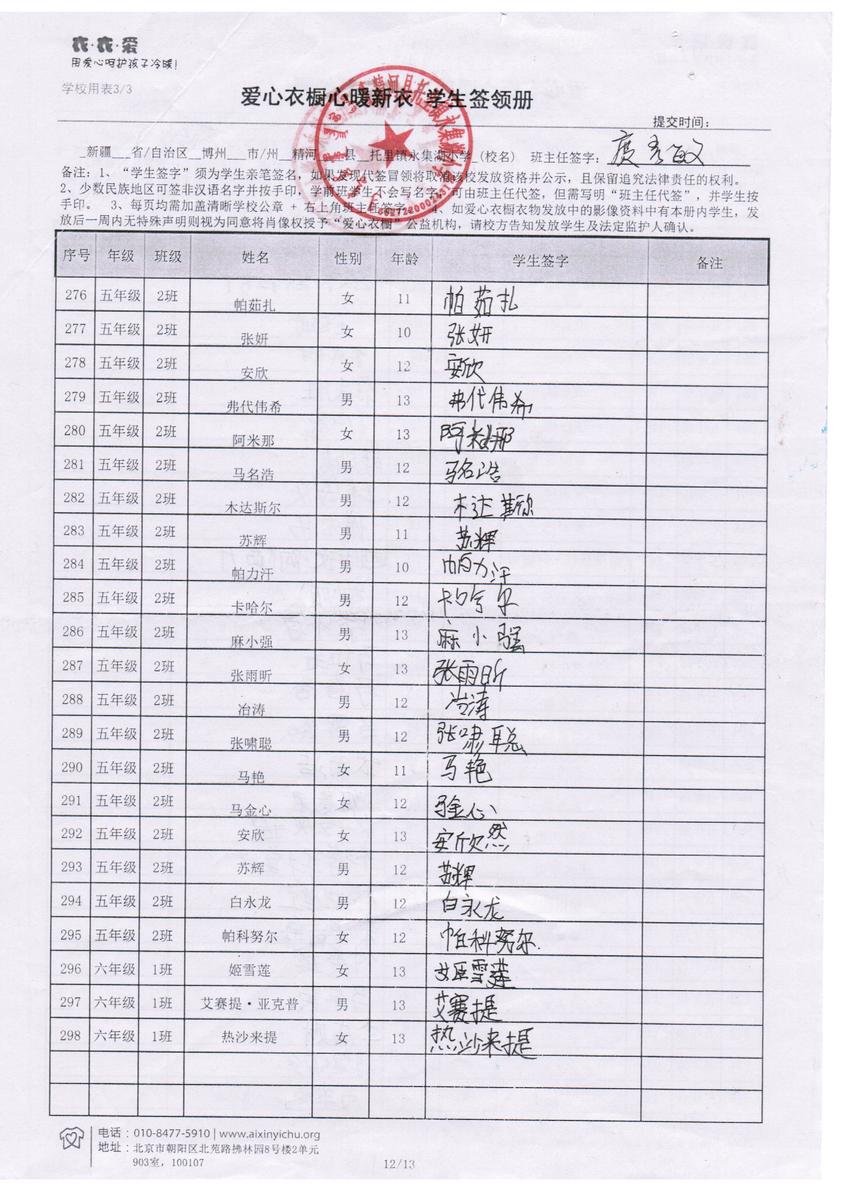 衣·衣·爱
用爱心呵护孩子冷暖!
学校用表3/3
爱心衣橱心暖新衣 学生签领册
提交时间:
_新疆___省/自治区__博州___市/州__精河___县__托里镇永集湖小学_(校名) 班主任签字:
备注:1、“学生签字”须为学生亲笔签名,如果发现代签冒领将取消该校发放资格并公示,且保留追究法律责任的权利。
2、少数民族地区可签非汉语名字并按手印,学前班学生不会写名字,可由班主任代签,但需写明“班主任代签”,并学生按
手印。 3、每页均需加盖清晰学校公章 + 右上角班主任签字 4、如爱心衣橱衣物发放中的影像资料中有本册内学生,发
放后一周内无特殊声明则视为同意将肖像权授予“爱心衣橱”公益机构,请校方告知发放学生及法定监护人确认。
序号 年级 班级 姓名 性别 年龄 学生签字 备注
276 五年级 2班 帕茹扎 女 11 帕茹扎
277 五年级 2班 张妍 女 10 张妍
278 五年级 2班 安欣 女 12 安欣
279 五年级 2班 弗代伟希 男 13 弗代伟希
280 五年级 2班 阿米那 女 13 阿米那
281 五年级 2班 马名浩 男 12 马名浩
282 五年级 2班 木达斯尔 男 12 木达斯尔
283 五年级 2班 苏辉 男 11 苏辉
284 五年级 2班 帕力汗 男 10 帕力汗
285 五年级 2班 卡哈尔 男 12 卡哈尔
286 五年级 2班 麻小强 男 13 麻小强
287 五年级 2班 张雨昕 女 13 张雨昕
288 五年级 2班 冶涛 男 12 冶涛
289 五年级 2班 张啸聪 男 12 张啸聪
290 五年级 2班 马艳 女 11 马艳
291 五年级 2班 马金心 女 12 马金心
292 五年级 2班 安欣 女 13 安欣然
293 五年级 2班 苏辉 男 12 苏辉
294 五年级 2班 白永龙 男 12 白永龙
295 五年级 2班 帕科努尔 女 12 帕科努尔.
296 六年级 1班 姬雪莲 女 13 姬雪莲
297 六年级 1班 艾赛提·亚克普 男 13 艾赛提
298 六年级 1班 热沙来提 女 13 热沙来提
电话:010-8477-5910 | www.aixinyichu.org
地址:北京市朝阳区北苑路拂林园8号楼2单元
903室,100107
12/13